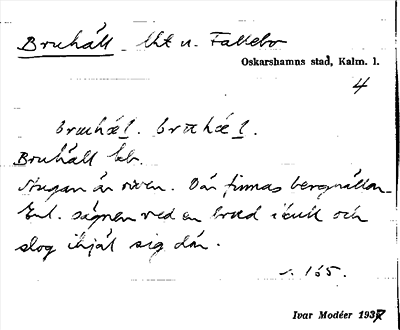 Bruhäll lht u. Fallebo
Oskarshamns stad, Kalm. l.
4
Bruhäll bb.
Stugan är riven. Där finnas berghällar.
Enl. sägnen red en brud ikull och
slog ihjäl sig där.
s. 165.
Ivar Modéer 1937